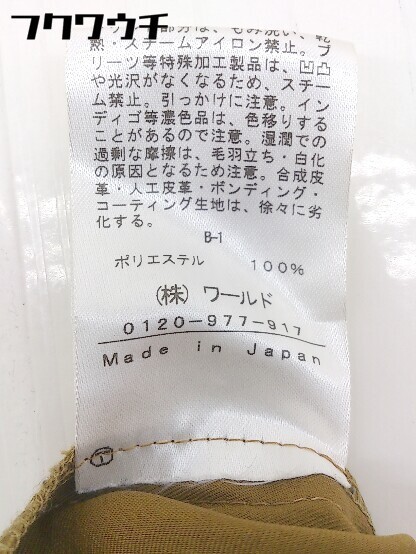 フクウチ
部分は、もみ洗い、乾
熱・スチームアイロン禁止。プ
リーツ等特殊加工製品は、凹凸
や光沢がなくなるため、スチー
ム禁止。引っかけに注意。イン
ディゴ等濃色品は、色移りする
ことがあるので注意。湿潤での
過剰な摩擦は、毛羽立ち・白化
の原因となるため注意。合成皮
革・人工皮革・ボンディング・
コーティング生地は、徐々に劣
化する。
B-1
ポリエステル 100%
(株)ワールド
0120-977-917
Made in Japan
1